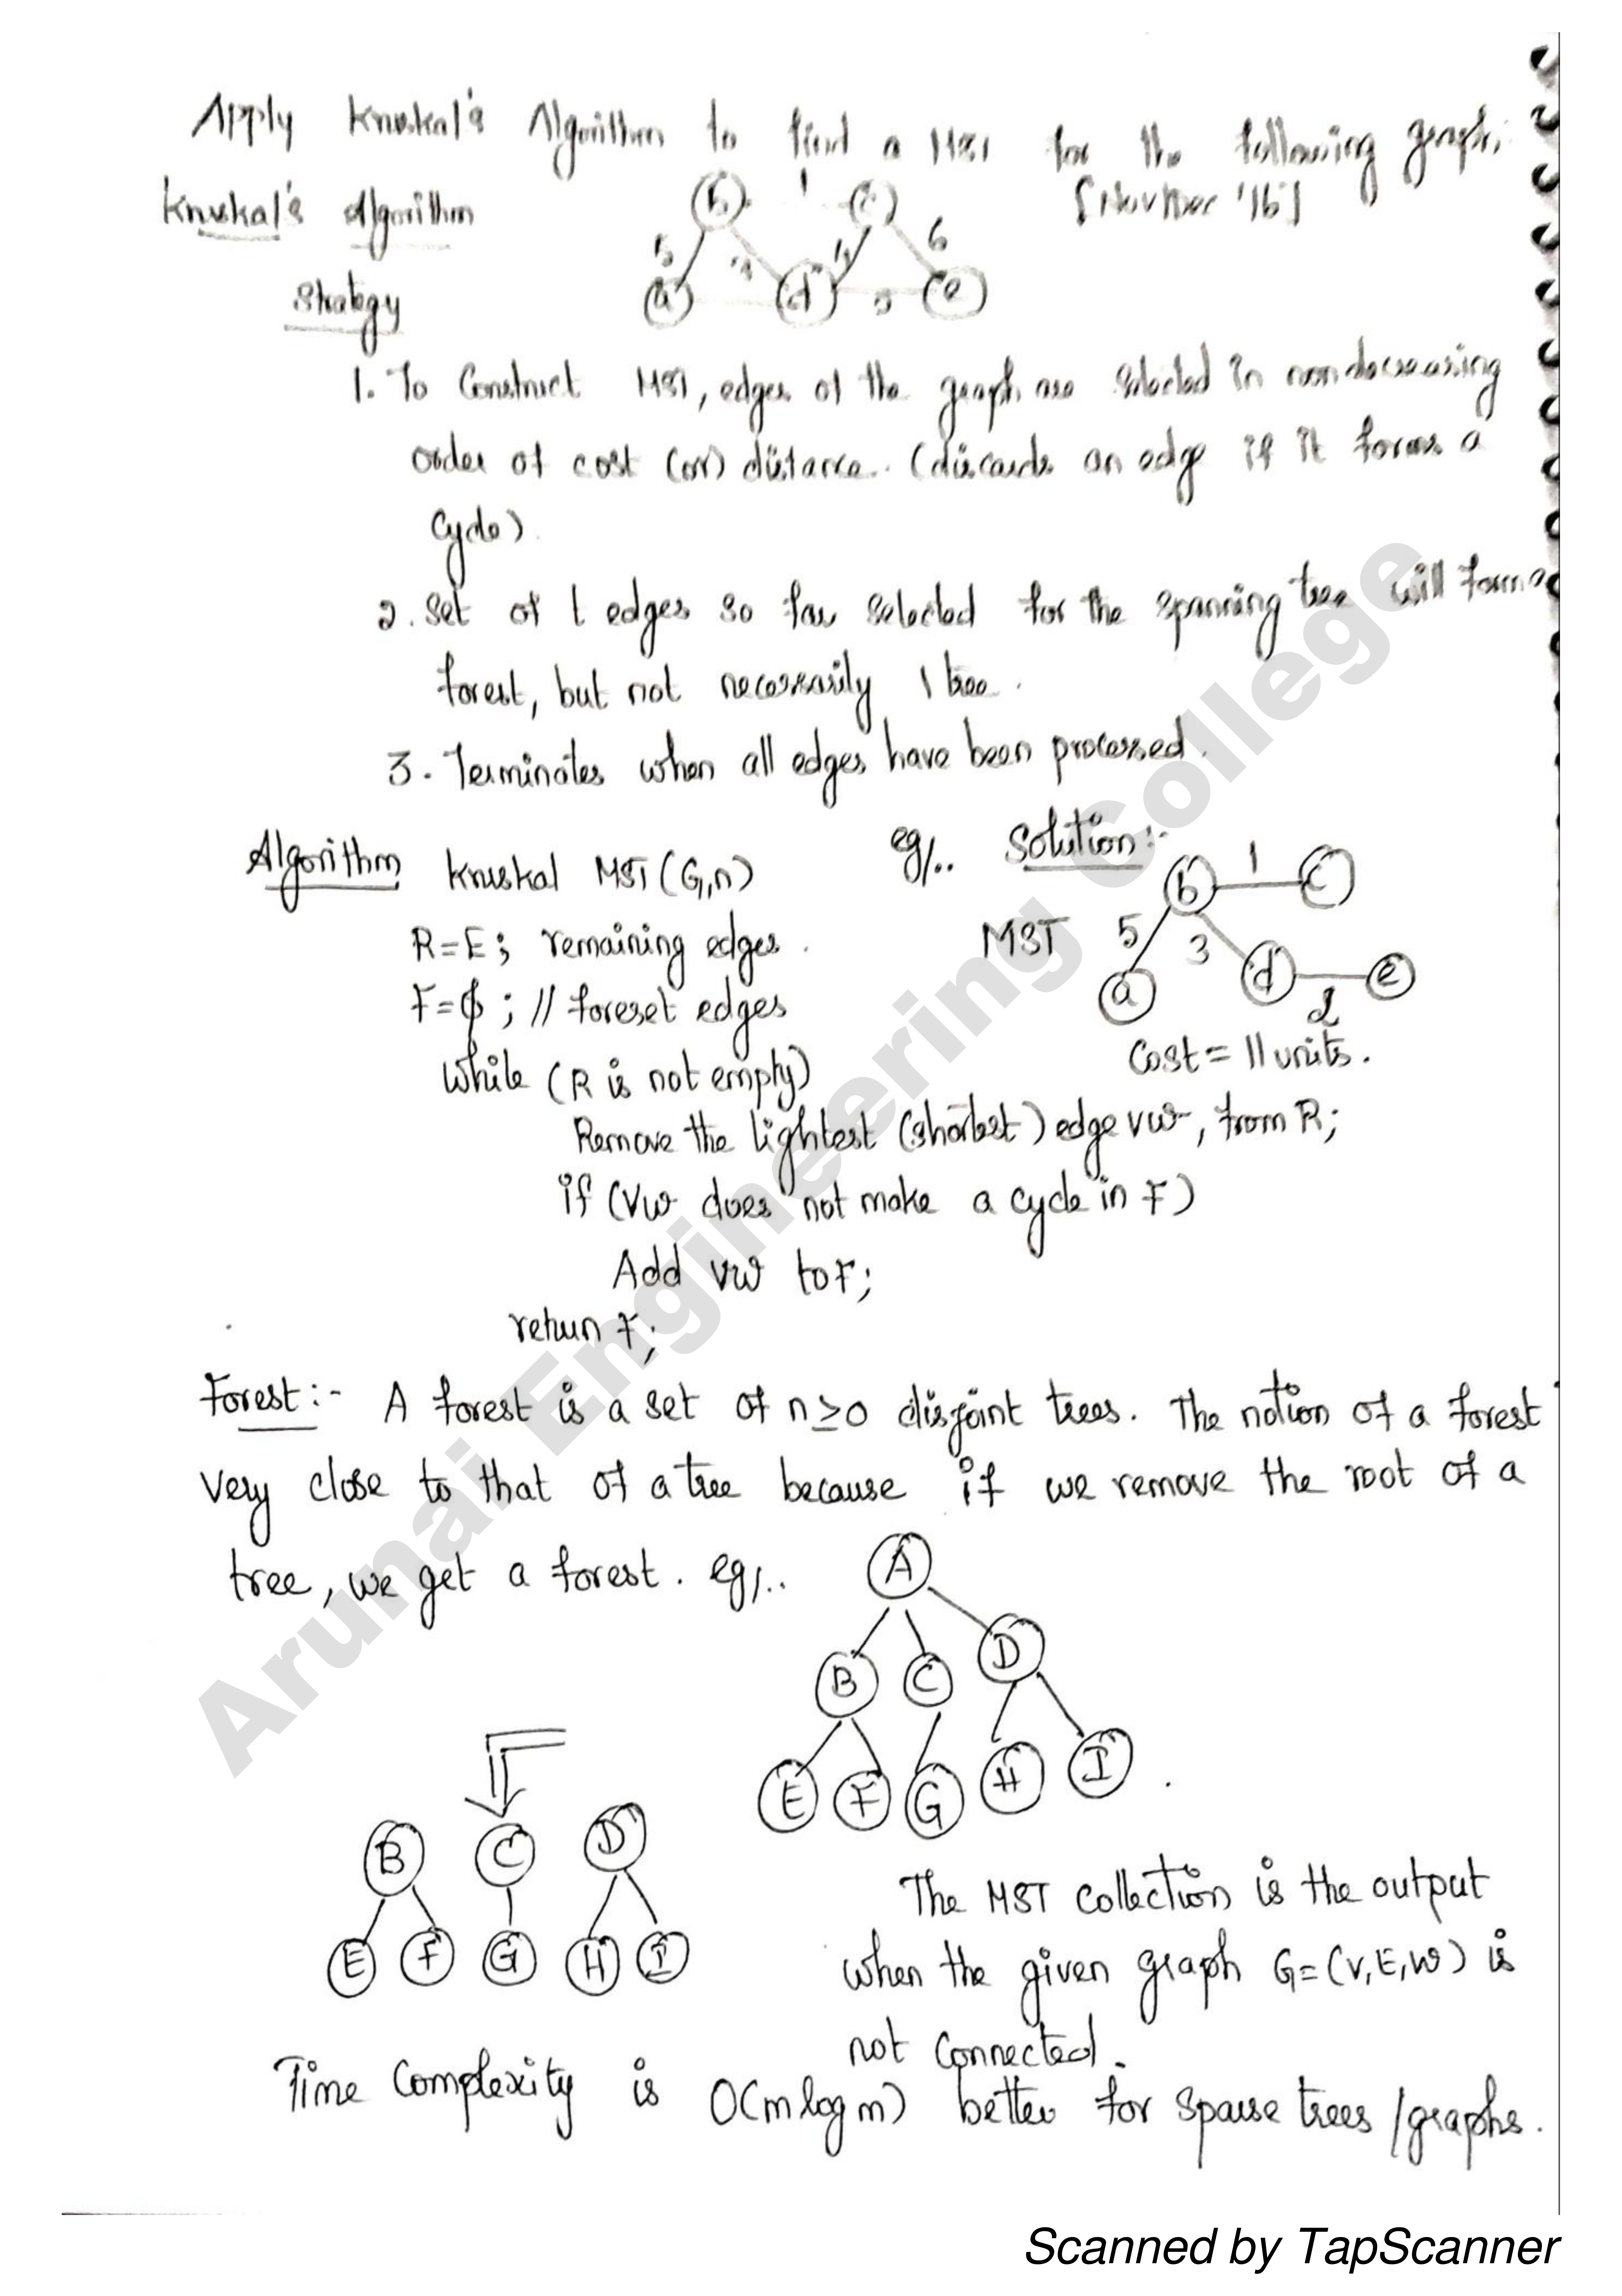 Apply Knuskal's Algorithm to find a MST for the following graph.
Knuskal's Algorithm
b 1 c
6
5
4
a d e
Strategy
1. To Construct MST, edges of the graph are selected in nondecreasing
order of cost (or) distance. (discards an edge if it forms a
cycle).
2. Set of t edges so far selected for the spanning tree will form a
forest, but not necessarily 1 tree.
3. Terminates when all edges have been processed.
Algorithm Knuskal MST (G,n)
eg/.. Solution:-
R=E; remaining edges.
F=ϕ; // foreset edges
while (R is not empty)
Remove the lightest (shortest) edge vw, from R;
if (vw does not make a cycle in F)
Add vw to F;
return F;
MST
b 1 c
5 3
a d e
2
Cost = 11 units.
Forest:- A forest is a set of n≥0 disjoint trees. The notion of a forest
very close to that of a tree because if we remove the root of a
tree, we get a forest. eg/..
A
B C D
E F G H I
B C D
E F G H I
The MST collection is the output
when the given graph G=(V,E,W) is
not connected.
Time Complexity is O(m log m) better for sparse trees/graphs.
Arunai Engineering College
Scanned by TapScanner